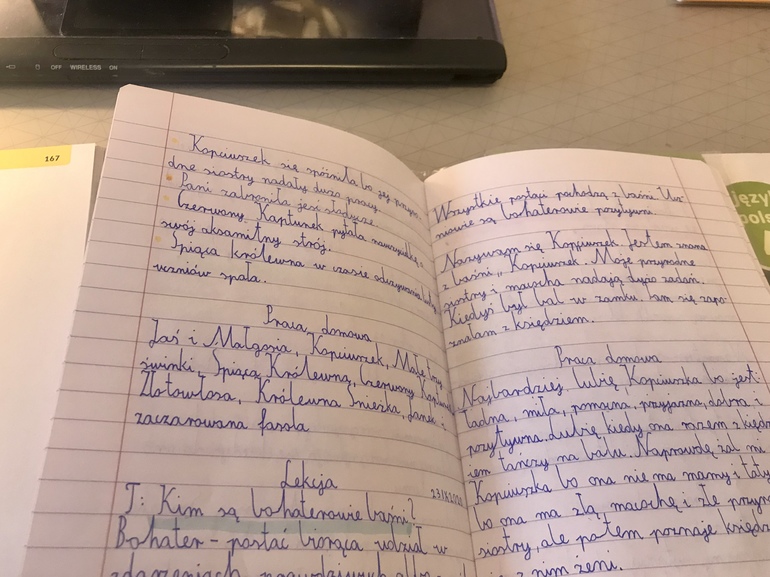 OFF WIRELESS ON
167
Kopciuszek się spóźniła bo jej przyro-
dne siostry nadały dużo pracy.
Pani zabroniła jeść słodycze.
Czerwony Kapturek pytała nauczycielkę o
swój aksamitny strój.
Śpiąca królewna w czasie odczytywania
uczniów spała.
Praca domowa
Jaś i Małgosia, Kopciuszek, Małe trzy
świnki, Śpiąca Królewna, Czerwony Kapturek
Złotowłosa, Królewna Śnieżka, Janek i
zaczarowana fasola
Lekcja
23 IX 2020
T: Kim są bohaterowie baśni?
Bohater - postać biorąca udział w
zdarzeniach
Wszystkie postaci pochodzą z baśni. Ucz-
niowie są bohaterowie pozytywni.
Nazywam się Kopciuszek. Jestem znana
z baśni „Kopciuszek. Moje przyrodne
siostry i macocha nadają dużo zadań.
Kiedyś był bal w zamku. Tam się zapo-
znałam z księdziem.
Praca domowa
Najbardziej lubię Kopciuszka bo jest:
ładna, miła, pomocna, przyjazna, dobra i
pozytywna. Lubię kiedy ona razem z księdz
iem tańczy na balu. Naprawdę żal mi
Kopciuszka bo ona nie ma mamy i taty
bo ona ma złą macochę i złe przyro
siostry, ale potem poznaje księdz
z nim żeni.
język
pols